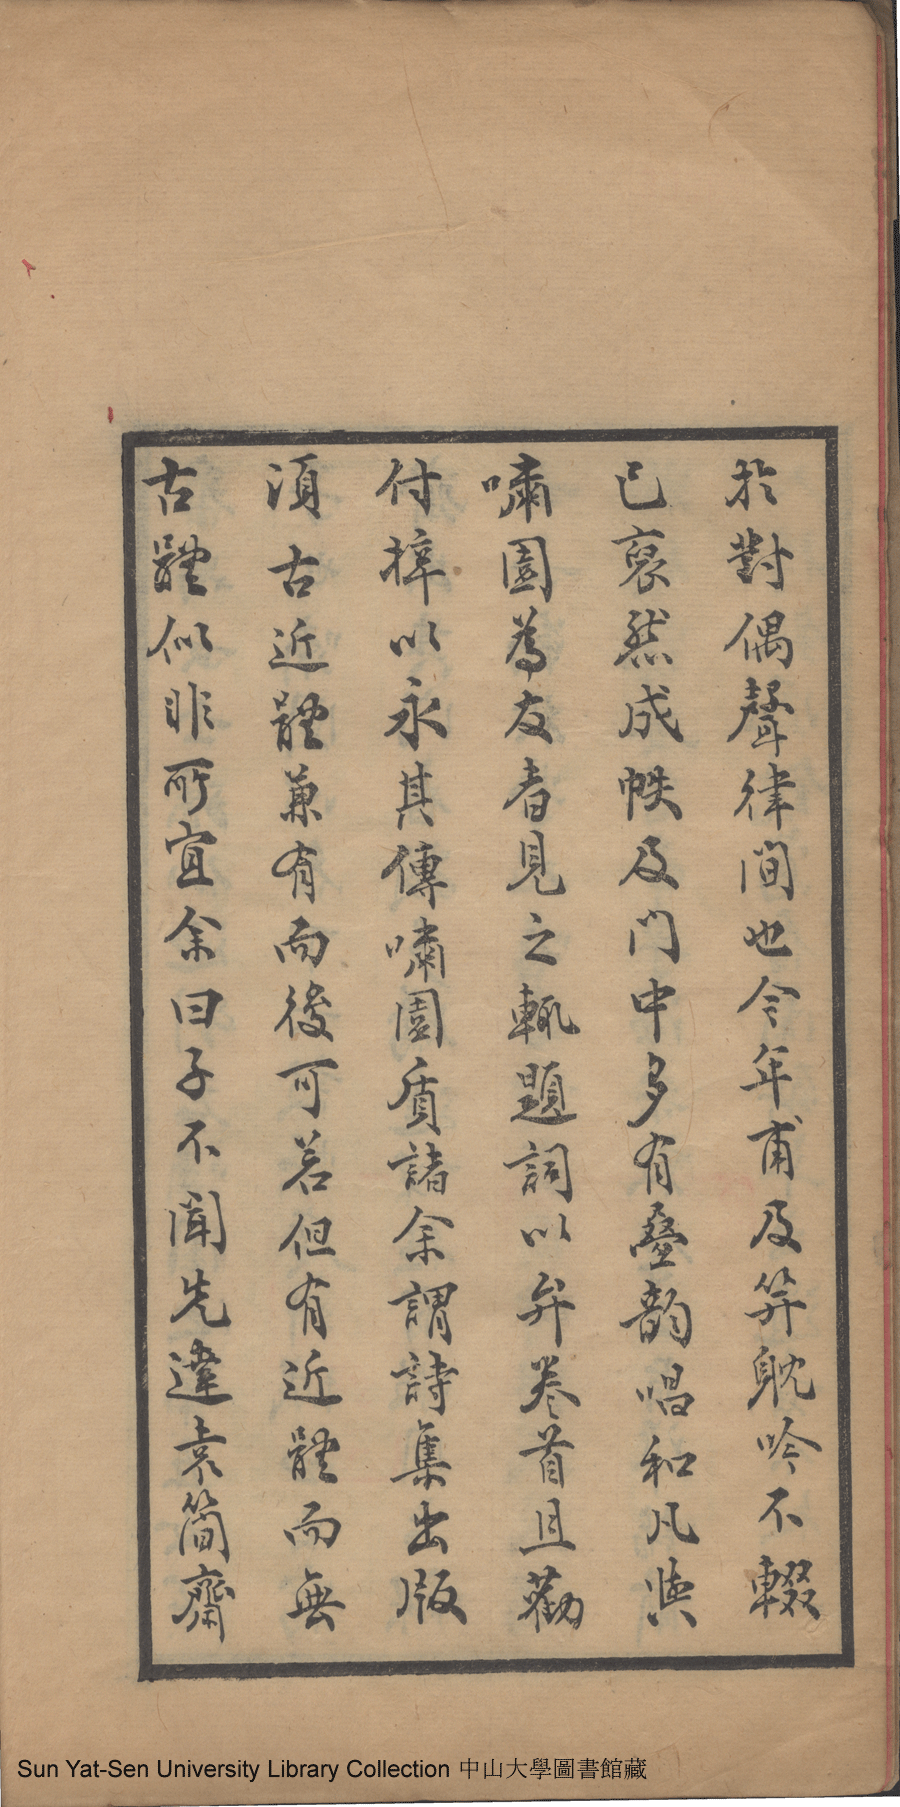 於對偶聲律間也今年甫及笄耽吟不輟
已裒然成帙及門中多有疊韵唱和凡與
嘯園為友者見之輒題詞以弁卷首且勸
付梓以永其傳嘯園质諸余謂詩集出版
須古近體兼有而後可若但有近體而無
古體似非所宜余曰子不聞先達袁簡齋
Sun Yat-Sen University Library Collection 中山大學圖書館藏